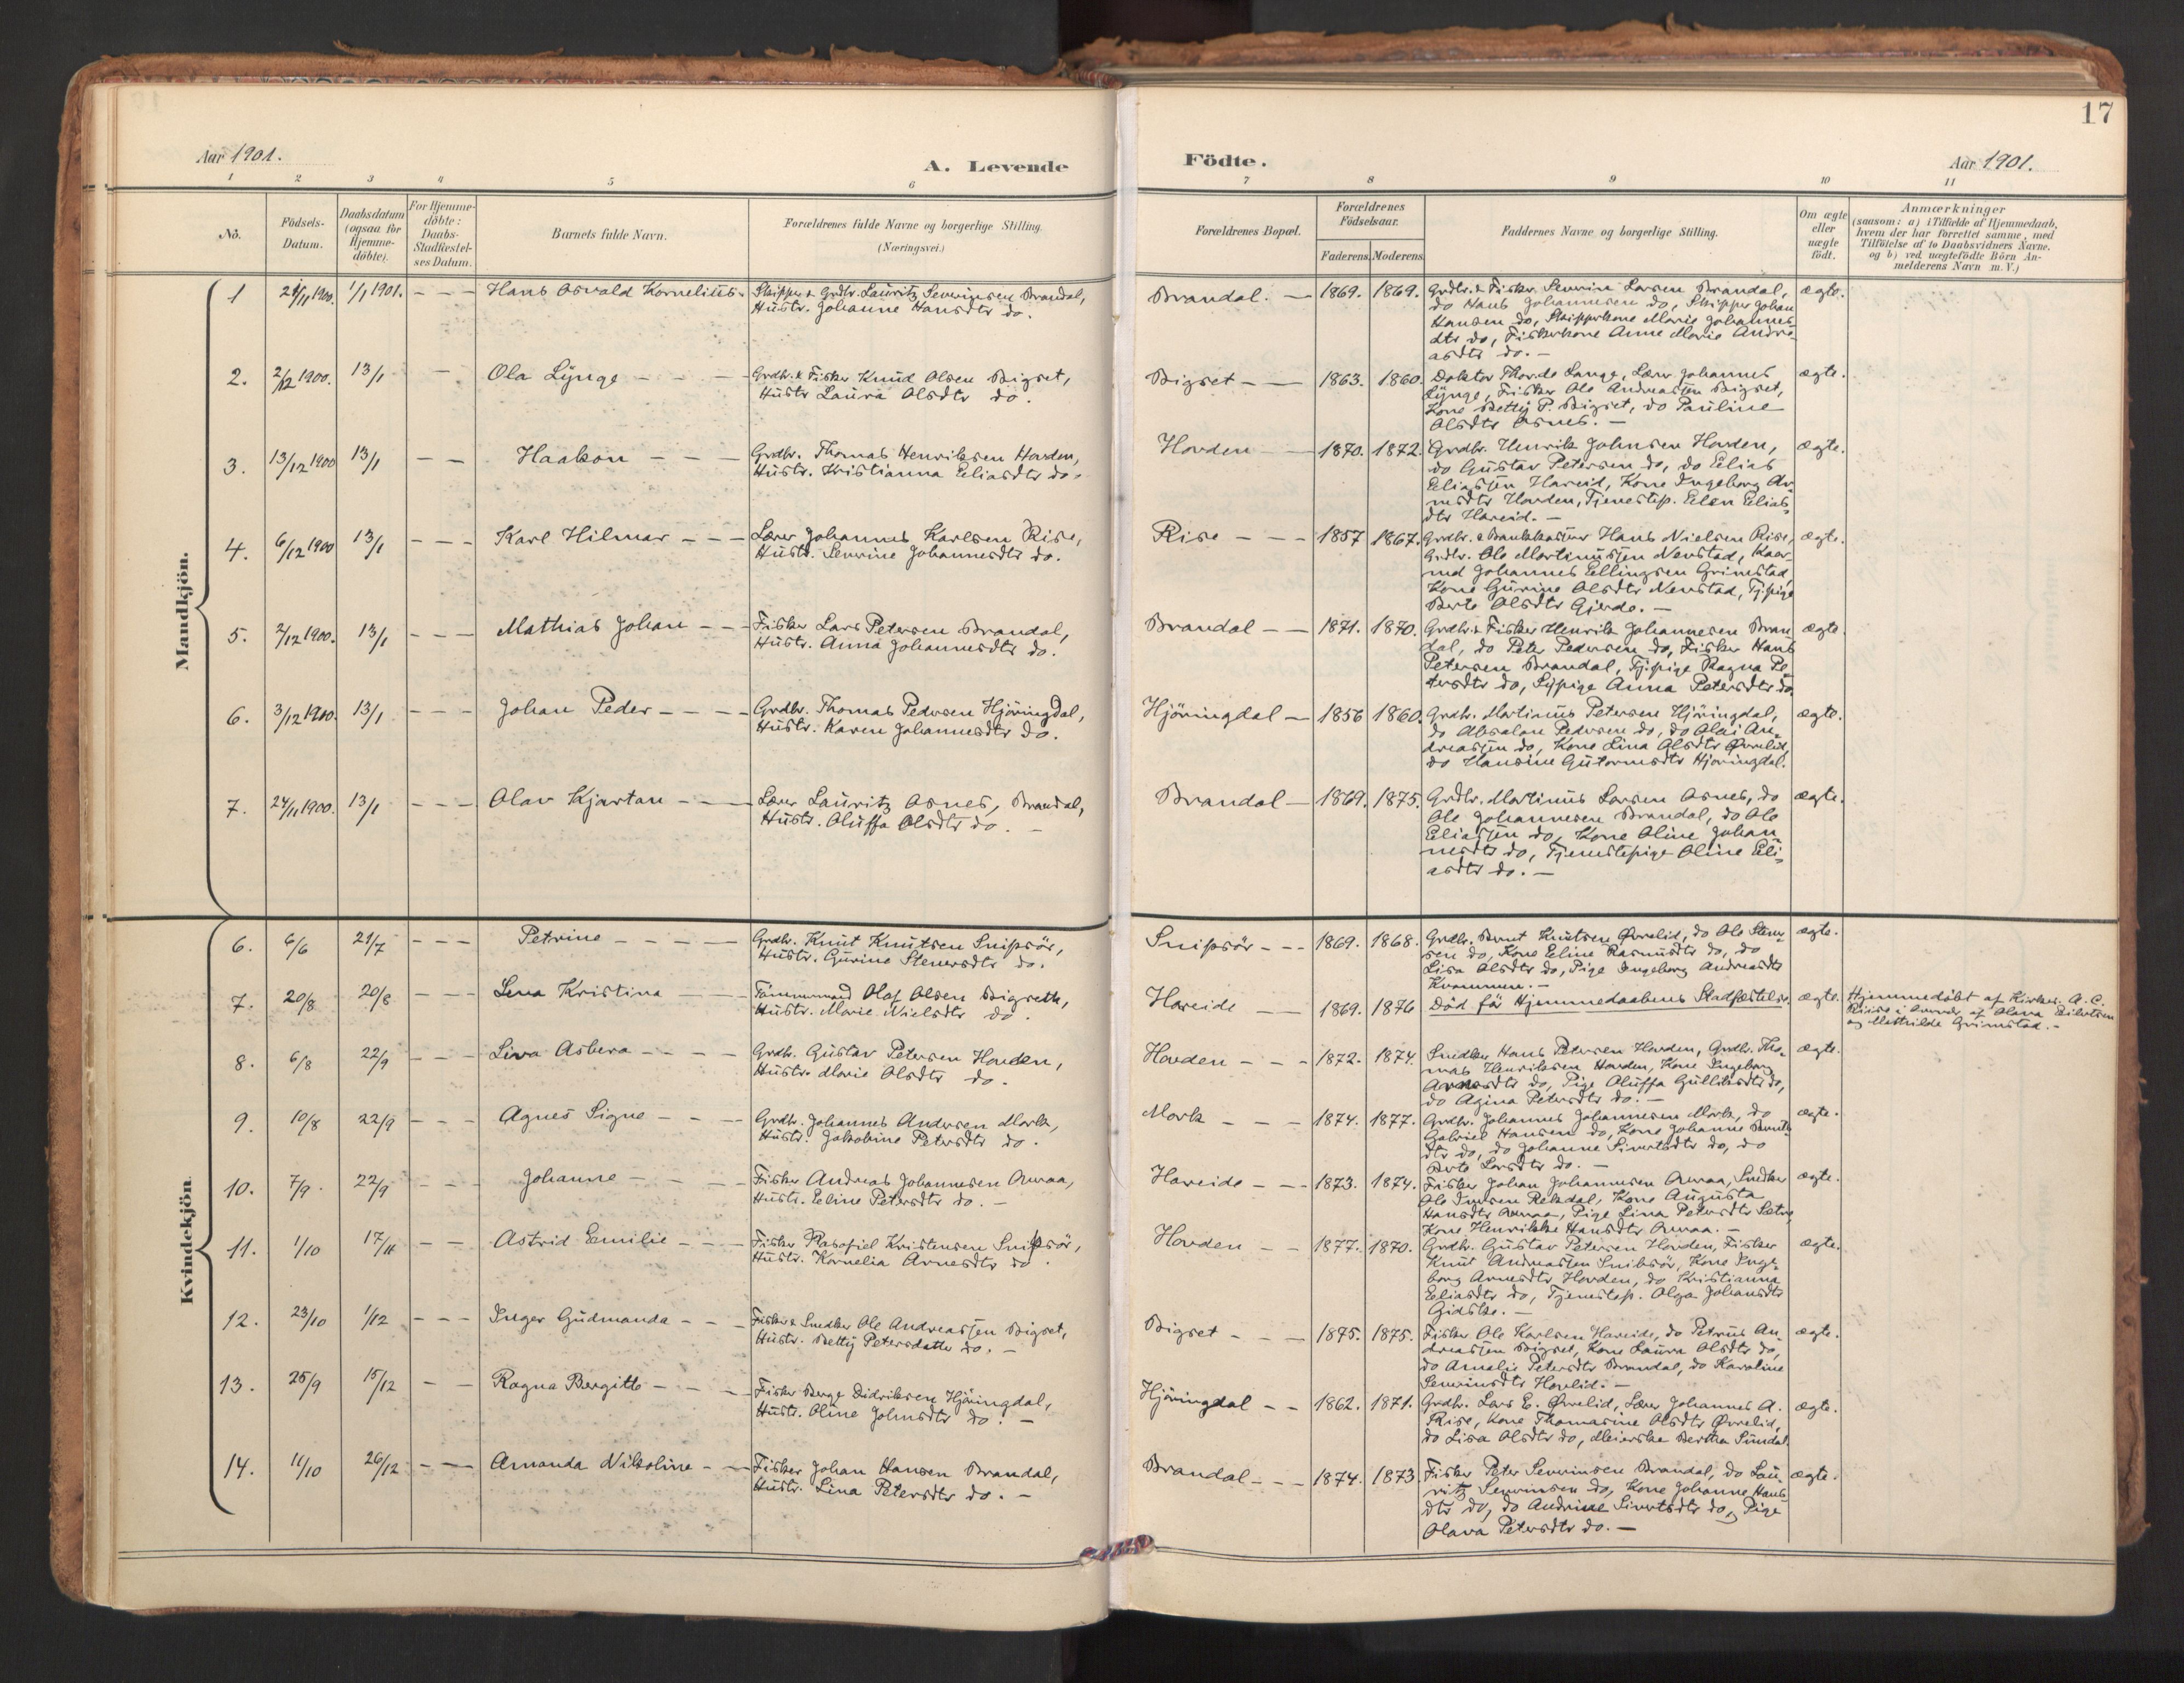 17
Aar 1901.
A. Levende
Födte.
Aar 1901.
1 2 3 4 5 6 7 8 9 10 11
No.
Födsels-
Datum.
Daabsdatum
(ogsaa for
Hjemme-
döbte).
For Hjemme-
döbte:
Daabs-
Stadfæstel-
ses Datum.
Barnets fulde Navn.
Forældrenes fulde Navne og borgerlige Stilling.
(Næringsvei.)
Forældrenes Bopæl.
Forældrenes
Födselsaar.
Faderens. Moderens.
Faddernes Navne og borgerlige Stilling.
Om ægte
eller
uægte
födt.
Anmærkninger
(saasom: a) i Tilfælde af Hjemmedaab,
hvem der har forrettet samme, med
Tilföielse af to Daabsvidners Navne,
og b) ved uægtefödte Börn An-
melderens Navn m. V.)
Mandkjön.
1 24/11 1900. 1/1 1901. - - - Hans Osvald Kornelius - Skipper & Grdbr. Lauritz Severinsen Brandal,
Hustr. Johanne Hansdtr do.
Brandal. - 1869. 1869. Grdbr. & Fisker Severin Larsen Brandal, ægte.
do Hans Johannesen do, Skipper Johan
Hansen do, Skipperkone Marie Johannes-
dtr do, Fiskerkone Anne Marie Andre-
asdtr do. -
2. 2/12 1900. 13/1 - Ola Lynge - - - Grdbr. & Fisker Knud Olsen Bigset,
Hustr Laura Olsdtr do.
Bigset - - 1863. 1860. Doktor Thorvald Lange, Lærer Johannes ægte.
Lynge, Fisker Ole Andreassen Bigset,
Kone Betty P. Bigset, do Pauline
Olsdtr Osnes. -
3. 13/12 1900 13/1 - - Haakon - - - Grdbr. Thomas Henriksen Hovden,
Hustr. Kristianna Eliasdtr do.
Hovden - 1870. 1872. Grdbr. Henrik Johnsen Hovden, ægte.
do Gustav Petersen do, do Elias
Eliassen Hareid, Kone Ingeborg Ar-
nesdtr Hovden, Tjenestep. Elen Elias-
dtr Hareid. -
4. 6/12 1900 13/1 - - - Karl Hilmar - - - Lærer Johannes Karlsen Rise,
Hustr. Severine Johannesdtr do.
Rise - - - 1857 1867. Grdbr. & Bankkasserer Hans Nielsen Rise, ægte.
Grdbr. Ole Martinussen Nevstad, Kaar-
md Johannes Ellingsen Grimstad,
Kone Gurine Olsdtr Nevstad, Tjpige
Berte Olsdtr Gjerde. -
5. 2/12 1900. 13/1 - - - Mathias Johan - - - Fisker Lars Petersen Brandal,
Hustr. Anna Johannesdtr do.
Brandal - - 1871. 1870. Grdbr. & Fisker Henrik Johannesen Bran- ægte.
dal, do Peter Pedersen do, Fisker Hans
Petersen Brandal, Tjpige Ragna Pe-
tersdtr do, Sypige Anna Petersdtr do
6. 3/12 1900. 13/1 - - - Johan Peder - - - - Grdbr. Thomas Pedersen Hjöringdal,
Hustr. Karen Johannesdtr do.
Hjöringdal - 1856 1860. Grdbr. Martinus Petersen Hjöringdal, ægte.
do Absalon Pedersen do, do Olai An-
dreassen do, Kone Lina Olsdtr Överlid,
do Hansine Gutormsdtr Hjöringdal.
7. 24/11 1900. 13/1 - - - Olav Kjartan - - - Lærer Lauritz Osnes, Brandal,
Hustr. Oluffa Olsdtr do. -
Brandal - 1869. 1875. Grdbr. Martinus Larsen Osnes, do ægte.
Ole Johannesen Brandal, do Ole
Eliassen do, Kone Oline Johan-
nesdtr do, Tjenestepige Oline Eli-
asdtr do. -
Kvindekjön.
6. 6/6 21/7 - - - Petrine - - - - Grdbr. Knut Knutsen Snipsör,
Hustr. Gurine Steversdtr do.
Snipsör - - - 1869. 1868. Grdbr. Bernt Knutsen Överlid, do Ole Stever- ægte.
sen do, Kone Eline Rasmusdtr do, do
Lisa Olsdtr do, Pige Ingeborg Andreasdtr
Kvammen. -
7. 20/8 20/8 - - - Lena Kristina - - - Tömmermand Olaf Olsen Bigseth,
Hustr. Marie Nielsdtr do.
Hareide - - 1869. 1876 Död för Hjemmedaabens Stadfæstelse. ægte. Hjemmedöbt af Kirkes. A. C.
Riise i Overvær af Olava Eilertsen
og Mathilde Grimstad. -
8. 6/8 22/9 - - - Liva Asbera - - - - Grdbr. Gustav Petersen Hovden,
Hustr. Marie Olsdtr do.
Hovden - - - 1872. 1874 Snedker Hans Petersen Hovden, Grdbr. Tho- ægte.
mas Henriksen Hovden, Kone Ingeborg
Arnesdtr do, Pige Oluffa Gulliksdtr do,
do Agina Petersdtr do. -
9. 10/8 22/9 - - - Agnes Signe - - - Grdbr. Johannes Andersen Mork,
Hustr. Jakobine Petersdtr do.
Mork - - - 1874. 1877. Grdbr. Johannes Johannesen Mork, do ægte.
Gabriel Hansen do, Kone Johanne Bernts-
dtr do, do Johanne Sivertsdtr do, do
Berte Larsdtr do. -
10. 7/9. 22/9 - - - Johanne - - - - Fisker Andreas Johannesen Overaa,
Hustr. Eline Petersdtr do. -
Hareide - - - 1873. 1874. Fisker Johan Johannesen Overaa, Snedker ægte.
Ole Iversen Rekdal, Kone Augusta
Hansdtr Overaa, Pige Lina Petersdtr Sætre,
Kone Henrikke Hansdtr Overaa. -
11. 1/10 17/11 - - Astrid Emilie - - - Fisker Rasofiel Kristensen Snipsör,
Hustr. Kornelia Arnesdtr do.
Hovden - - 1877. 1870. Grdbr. Gustav Petersen Hovden, Fisker ægte.
Knut Andreassen Snipsör, Kone Inge-
borg Arnesdtr Hovden, do Kristianna
Eliasdtr do, Tjenestep. Olga Johansdtr
Gidske. -
12. 23/10 1/12 - - - Inger Gudmanda - - - Fisker & Snedker Ole Andreassen Bigset,
Hustr. Betty Petersdatter do. -
Bigset - - - 1875. 1875. Fisker Ole Karlsen Hareide, do Petrus An- ægte.
dreassen Bigset, Kone Laura Olsdtr do,
do Amalie Petersdtr Brandal, do Karoline
Severinsdtr Hovlid. -
13. 25/9 15/12 - - Ragna Bergitte - - - - Fisker Berge Didriksen Hjöringdal,
Hustr. Oline Johnsdtr do. -
Hjöringdal - - 1862. 1871. Grdbr. Lars E. Överlid, Lærer Johannes A. ægte.
Rise, Kone Thomasine Olsdtr Överlid,
do Lisa Olsdtr do, Meierske Bertha Sundal.
14. 11/10 26/12 - - Amanda Nikoline - - Fisker Johan Hansen Brandal,
Hustr. Lina Petersdtr do. -
Brandal - - - 1874. 1873. Fisker Peter Severinsen Brandal, do Lau- ægte.
ritz Severinsen do, Kone Johanne Hans-
dtr do, do Andrine Sivertsdtr do, Pige
Olava Petersdtr do. -